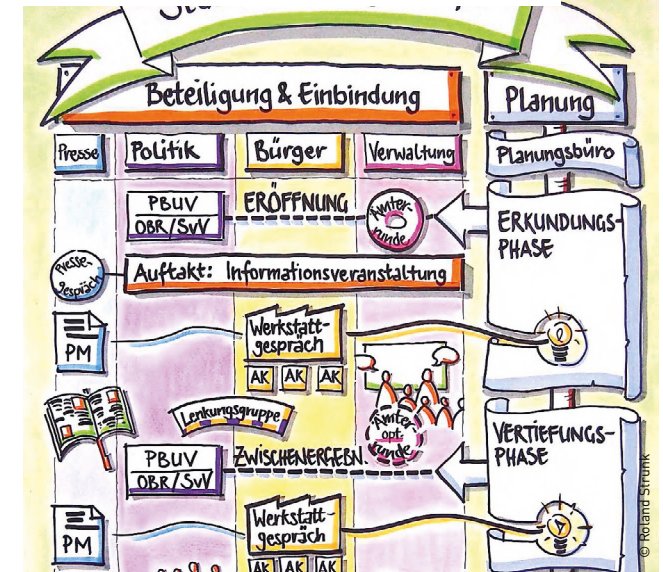 Beteiligung & Einbindung
Planung
Presse
Politik
Bürger
Verwaltung
Planungsbüro
PBUV
OBR/SVV
ERÖFFNUNG
Ämter-
runde
ERKUNDUNGS-
PHASE
Presse-
gespräch
Auftakt: Informationsveranstaltung
PM
Werkstatt-
gespräch
AK
AK
AK
Lenkungsgruppe
Ämter
opt.
runde
PBUV
OBR/SVV
ZWISCHENERGEBN.
VERTIEFUNGS-
PHASE
PM
Werkstatt-
gespräch
AK
AK
AK
© Roland Strunk